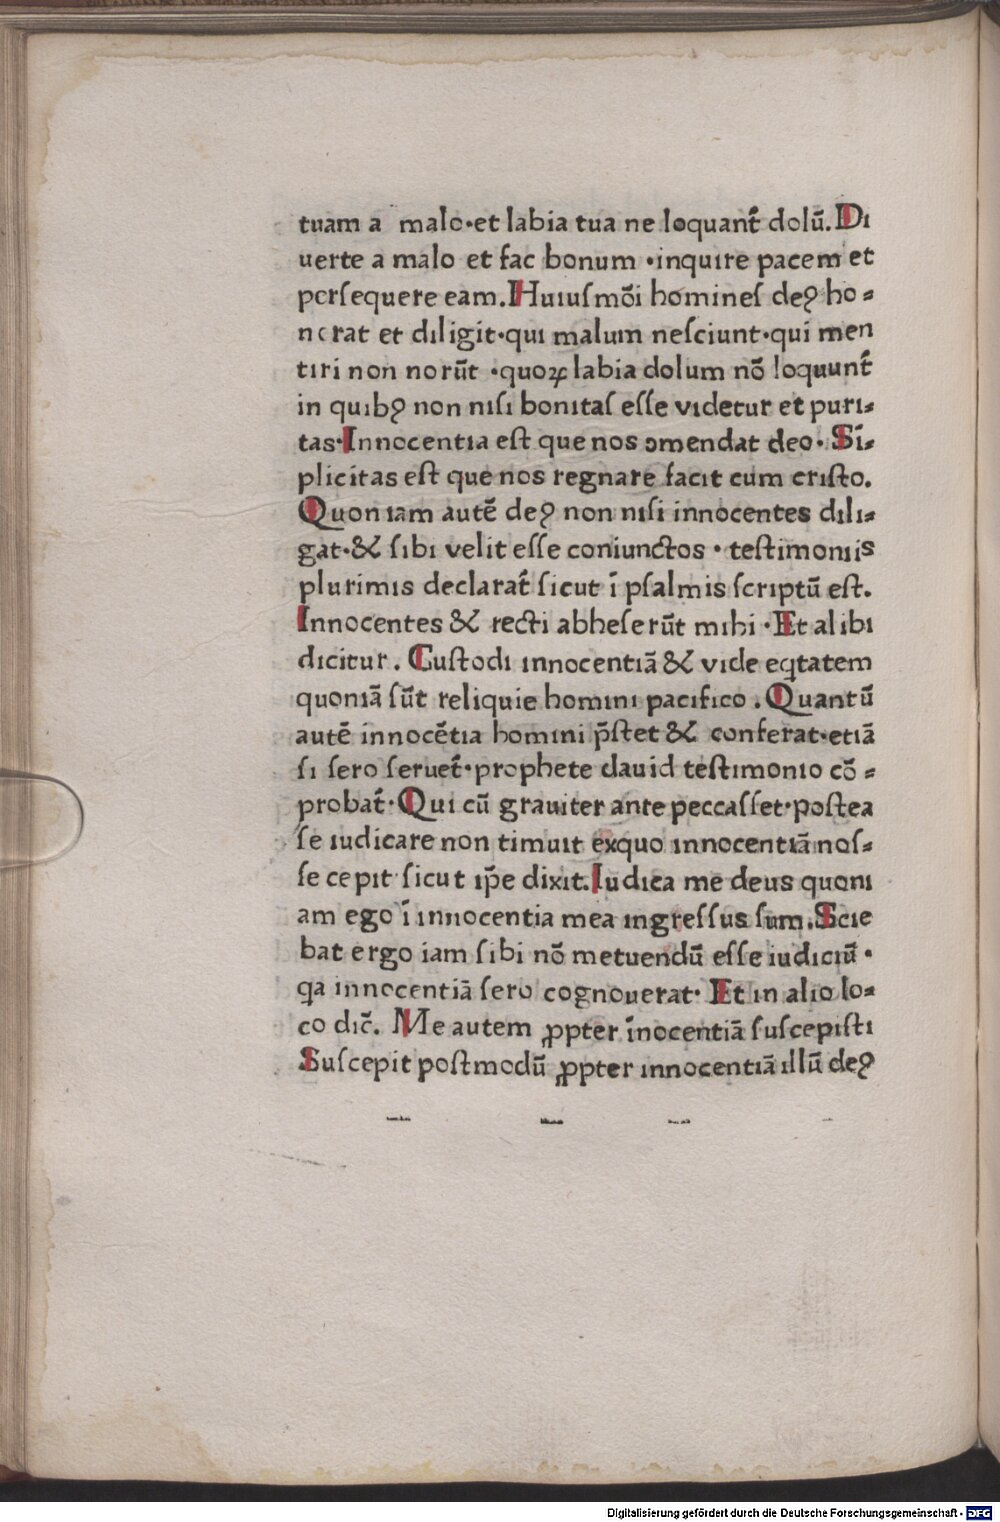 tuam a malo·et labia tua ne loquant̄ dolū. Di
uerte a malo et fac bonum ·inquire pacem et
persequere eam. Huiuſmōi homineſ deꝰ ho⸗
norat et diligit·qui malum neſciunt·qui men
tiri non norūt ·quoꝝ labia dolum nō loquunt̄
in quibꝰ non niſi bonitaſ eſſe videtur et puri⸗
tas·Innocentia eſt que nos ↄmendat deo· Sī⸗
plicitas eſt que nos regnare facit cum criſto.
Quoniam autē deꝰ non niſi innocentes dili⸗
gat·& ſibi velit eſſe coniunctos · teſtimoniis
plurimis declarat̄ ſicut ī pſalmis ſcriptū eſt.
Innocentes & recti abheſerūt mihi · Et alibi
dicitur. Cuſtodi innocentiā & vide eq̇tatem
quoniā ſūt reliquie homini pacifico. Quantū
autē innocētia homini p̄ſtet & conferat·etiā
ſi ſero ſeruet̄·prophete dauid teſtimonio cō⸗
probat̄· Qui cū grauiter ante peccaſſet·poſtea
ſe iudicare non timuit exquo innocentiā noſ⸗
ſe cepit ſicut ip̄e dixit. Iudica me deus quoni
am ego ī innocentia mea ingreſſus ſum. Scie
bat ergo iam ſibi nō metuendū eſſe iudiciū ·
qa innocentiā ſero cognouerat· Et in alio lo⸗
co dic̄. Me autem ꝓpter īnocentiā ſuſcepiſti
Suſcepit poſtmodū ꝓpter innocentiā illū deꝰ
Digitalisierung gefördert durch die Deutsche Forschungsgemeinschaft - DFG